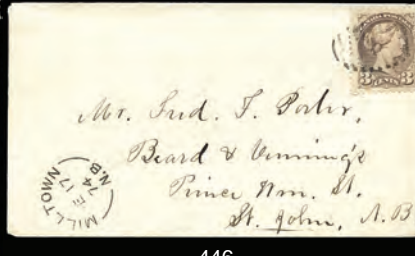 3 CENTS 3
Mr. Fred. F. Porter,
Beard & Venning's
Prince Wm. St.
St. John, N.B
MILLTOWN
17
74
N.B
446